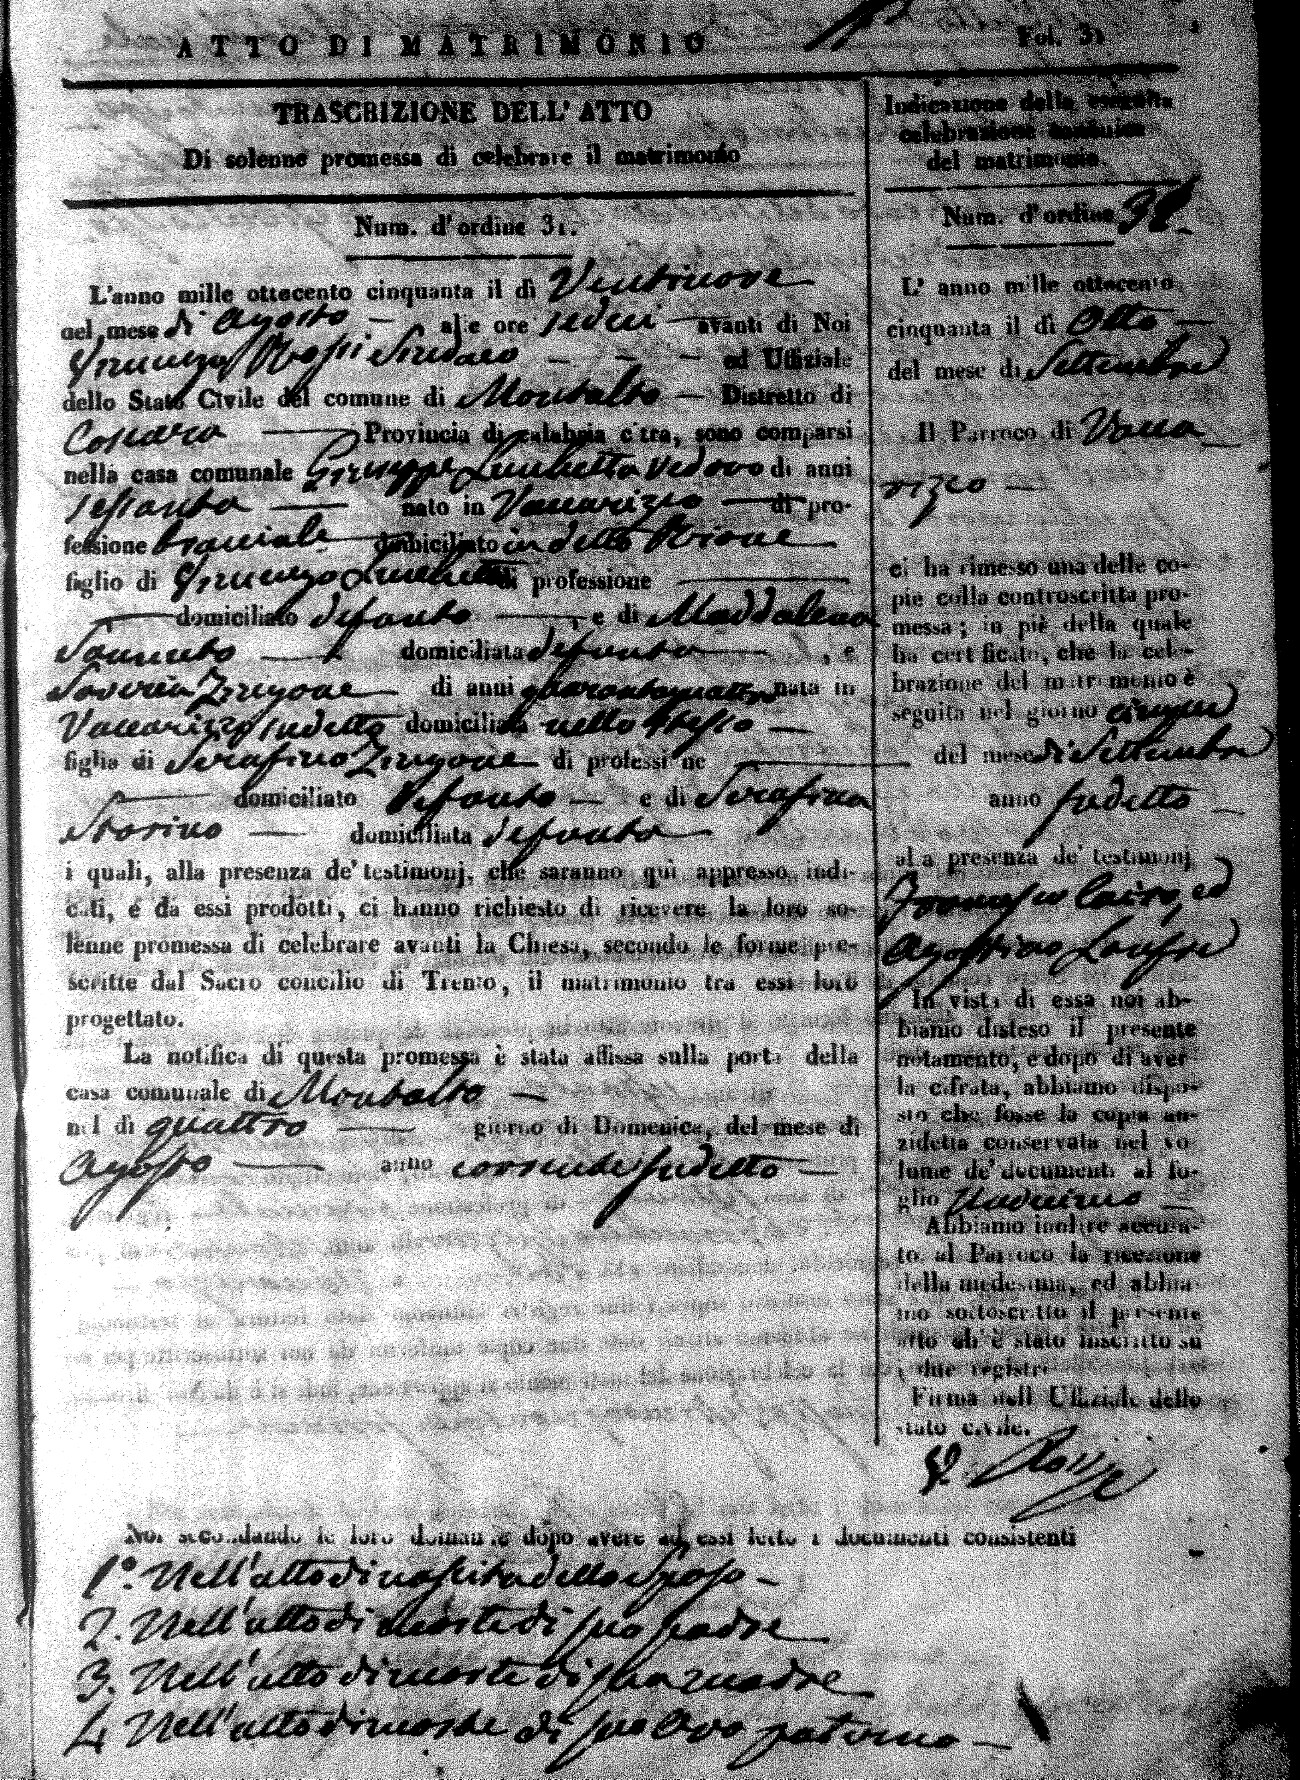 ATTO DI MATRIMONIO
Fol. 31
TRASCRIZIONE DELL' ATTO
Di solenne promessa di celebrare il matrimonio
Num. d'ordine 31.
L'anno mille ottocento cinquanta il dì Ventinove
nel mese di Agosto — alle ore sedici — avanti di Noi
Vincenzo Rossi Sindaco — — — ed Uffiziale
dello Stato Civile del comune di Montalto — Distretto di
Cosenza — Provincia di calabria citra, sono comparsi
nella casa comunale Giuseppe Luchetta vedovo di anni
sessanta — nato in Vaccarizzo — di pro-
fessione bracciale — domiciliato in detto Rione —
figlio di Vincenzo Luchetta di professione —
— domiciliato defunto — e di Maddalena
domiciliata defunta — , e
Saveria Zingone — di anni quarantaquattro nata in
Vaccarizzo sudetto domiciliata nello stesso —
figlia di Serafino Zingone — di professione —
— domiciliato defunto — e di Serafina
Storino — domiciliata defunta —
i quali, alla presenza de' testimonj, che saranno qui appresso indi-
cati, e da essi prodotti, ci hanno richiesto di ricevere la loro so-
lenne promessa di celebrare avanti la Chiesa, secondo le forme pre-
scritte dal Sacro concilio di Trento, il matrimonio tra essi loro
progettato.
La notifica di questa promessa è stata affissa sulla porta della
casa comunale di Montalto —
nel dì quattro — giorno di Domenica, del mese di
Agosto — anno corrente sudetto —
Indicazione della seguita
celebrazione canonica
del matrimonio.
Num. d'ordine 31.
L' anno mille ottocento
cinquanta il dì Otto —
del mese di Settembre
Il Parroco di Vacca
rizzo —
ci ha rimesso una delle co-
pie colla controscritta pro-
messa; in piè della quale
ha certificato, che la cele-
brazione del matrimonio è
seguita nel giorno cinque
del mese di Settembre
anno sudetto —
alla presenza de' testimonj
Francesco Cairo, ed
Agostino
In vista di essa noi ab-
biamo disteso il presente
notamento, e dopo di aver-
la cifrata, abbiamo dispo-
sto che fosse la copia an-
zidetta conservata nel vo-
lume de' documenti al fo-
glio
Abbiamo inoltre accusa-
to al Parroco la ricezione
della medesima, ed abbia-
mo sottoscritto il presente
atto ch' è stato inscritto su
i due registri
Firma dell' Uffiziale dello
stato civile.
V. Rossi
Noi secondando le loro domande dopo avere ad essi letto i documenti consistenti
1°. Nell'atto di nascita dello Sposo —
2. Nell'atto di morte di suo padre —
3. Nell'atto di morte di sua madre —
4 Nell'atto di morte di suo Avo paterno —